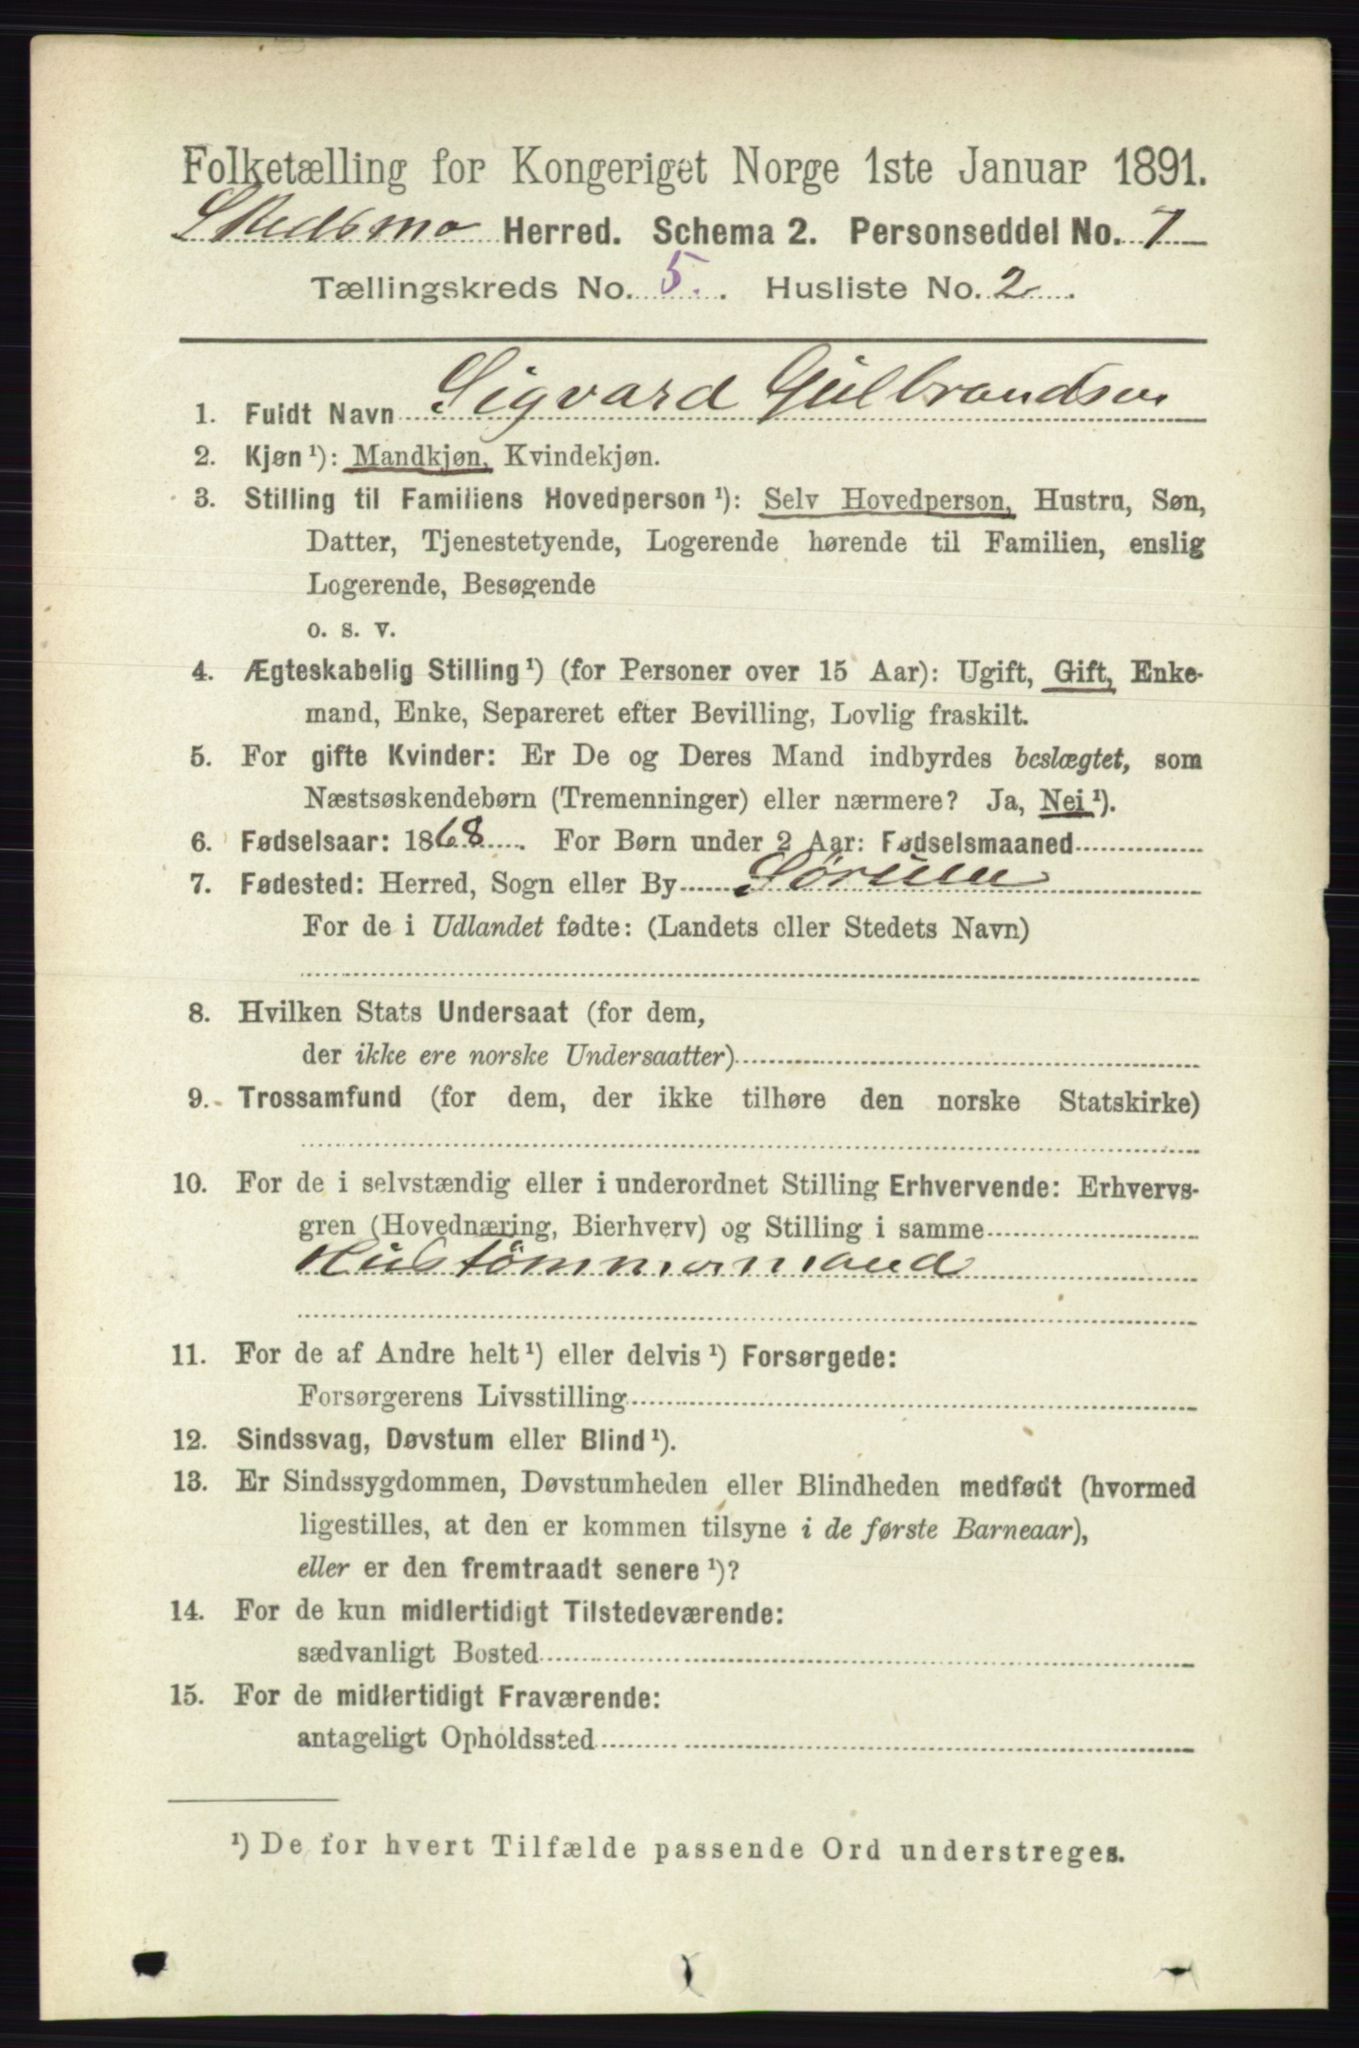 Folketælling for Kongeriget Norge 1ste Januar 1891.
Skedsmo Herred. Schema 2. Personseddel No. 7
Tællingskreds No. 5. Husliste No. 2
1. Fuldt Navn Sigvard Gulbrandsen
2. Kjøn ¹): Mandkjøn, Kvindekjøn.
3. Stilling til Familiens Hovedperson ¹): Selv Hovedperson, Hustru, Søn,
Datter, Tjenestetyende, Logerende hørende til Familien, enslig
Logerende, Besøgende
o. s. v.
4. Ægteskabelig Stilling ¹) (for Personer over 15 Aar): Ugift, Gift, Enke-
mand, Enke, Separeret efter Bevilling, Lovlig fraskilt.
5. For gifte Kvinder: Er De og Deres Mand indbyrdes beslægtet, som
Næstsøskendebørn (Tremenninger) eller nærmere? Ja, Nei ¹).
6. Fødselsaar: 1868. For Børn under 2 Aar: Fødselsmaaned
7. Fødested: Herred, Sogn eller By Sørum
For de i Udlandet fødte: (Landets eller Stedets Navn)
8. Hvilken Stats Undersaat (for dem,
der ikke ere norske Undersaatter)
9. Trossamfund (for dem, der ikke tilhøre den norske Statskirke)
10. For de i selvstændig eller i underordnet Stilling Erhvervende: Erhvervs-
gren (Hovednæring, Bierhverv) og Stilling i samme
Hustømmermand
11. For de af Andre helt ¹) eller delvis ¹) Forsørgede:
Forsørgerens Livsstilling
12. Sindssvag, Døvstum eller Blind ¹).
13. Er Sindssygdommen, Døvstumheden eller Blindheden medfødt (hvormed
ligestilles, at den er kommen tilsyne i de første Barneaar),
eller er den fremtraadt senere ¹)?
14. For de kun midlertidigt Tilstedeværende:
sædvanligt Bosted
15. For de midlertidigt Fraværende:
antageligt Opholdssted
¹) De for hvert Tilfælde passende Ord understreges.